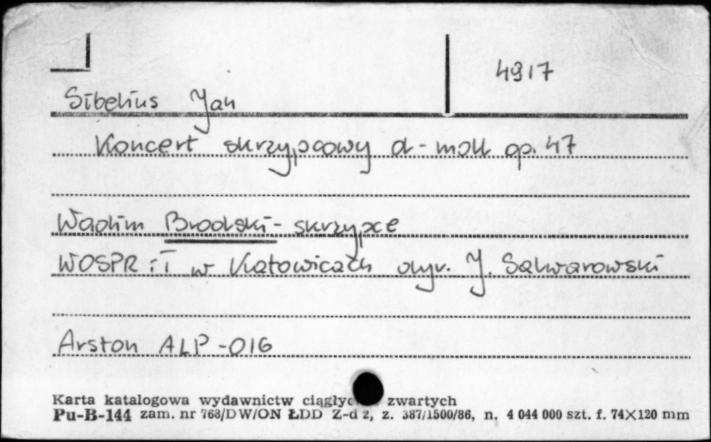 4917
Sibelius Jan
Koncert skrzypcowy d-moll op. 47
Wadim Brodski - skrzypce
WOSPR iT w Katowicach dyr. J. Salwarowski
Arston ALP-016
Karta katalogowa wydawnictw ciągłyc zwartych
Pu-B-144 zam. nr 768/DW/ON ŁDD Z-d 2, z. 387/1500/86, n. 4 044 000 szt. f. 74×120 mm